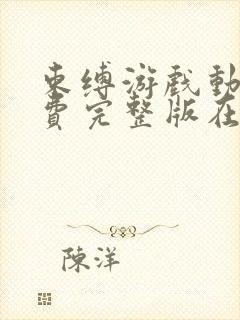 束缚游戏动
费完整版在
陳洋